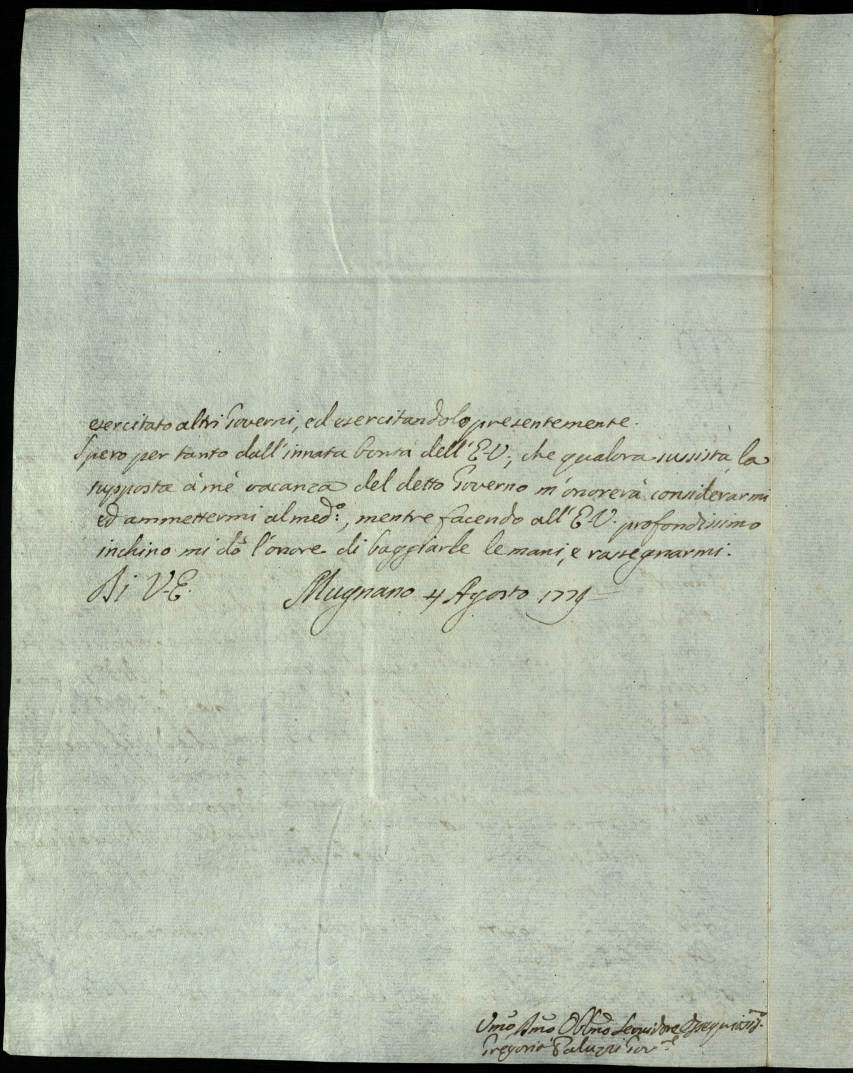 esercitato altri Governi, ed esercitandolo presentemente.
Spero per tanto dall'innata bontà dell'E.V., che qualora sussista la
supposta à mè vacanza del detto Governo m'onorerà considerarmi
ed ammettermi al med:º, mentre facendo all'E.V. profondissimo
inchino mi dò l'onore di baggiarle le mani, e rassegnarmi.
Di V.E. Mugnano 4 Agosto 1779
Umo Obbmo Servidore
Gregorio Paluzzi Gov.re